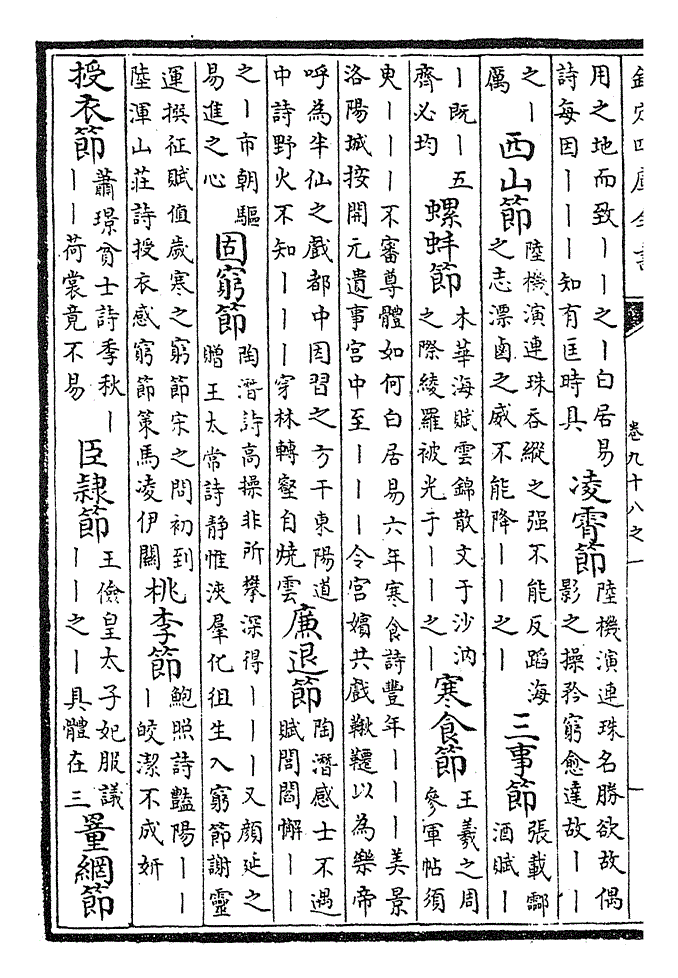 欽定四庫全書
卷九十八之一
用之地而致丨丨之丨白居易
詩每因丨丨丨知有匡時具
凌霄節
陸機演連珠名勝欲故偶
影之操矜窮愈達故丨丨
之丨
厲
西山節
陸機演連珠吞縱之强不能反蹈海
之志漂鹵之威不能降丨丨之丨
三事節
張載酃
酒賦丨
丨既丨五
齊必均
螺蚌節
木華海賦雲錦散文于沙汭
之際綾羅被光于丨丨之丨
寒食節
王羲之周
參軍帖須
臾丨丨丨不審尊體如何白居易六年寒食詩豐年丨丨丨美景
洛陽城按開元遺事宮中至丨丨丨令宮嬪共戲鞦韆以為樂帝
呼為半仙之戲都中因習之方干東陽道
中詩野火不知丨丨丨穿林轉壑自燒雲
廉退節
陶潛感士不遇
賦閭閻懈丨丨
之丨市朝驅
易進之心
固窮節
陶潛詩高操非所攀深得丨丨丨又顏延之
贈王太常詩靜惟浹羣化徂生入窮節謝靈
運撰征賦值歲寒之窮節宋之問初到
陸渾山莊詩授衣感窮節策馬凌伊闕
桃李節
鮑照詩豔陽丨丨
丨皎潔不成妍
授衣節
蕭璟貧士詩季秋丨
丨丨荷裳竟不易
臣隸節
王儉皇太子妃服議
丨丨之丨具體在三
罿網節